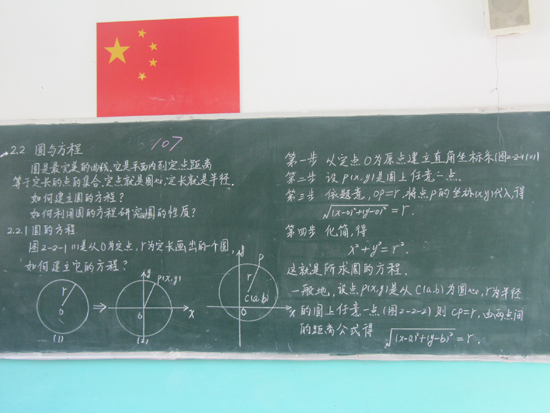 2.2 圆与方程
107
圆是最完美的曲线.它是平面内到定点距离
等于定长的点的集合.定点就是圆心,定长就是半径.
如何建立圆的方程?
如何利用圆的方程研究圆的性质?
2.2.1 圆的方程
图2-2-1(1)是从O为定点,r为定长画出的一个圆,
如何建立它的方程?
r
O
(1)
y
P(x,y)
r
O
x
(2)
y
P
r
C(a,b)
O
x
第一步 以定点O为原点建立直角坐标系(图2-2-1(2))
第二步 设P(x,y)是圆上任意一点.
第三步 依题意,OP=r.将点P的坐标(x,y)代入,得
√(x-0)²+(y-0)² = r.
第四步 化简,得
x²+y²=r².
这就是所求圆的方程.
一般地,设点P(x,y)是从C(a,b)为圆心,r为半径
的圆上任意一点(图2-2-2)则CP=r,由两点间
的距离公式得 √(x-a)²+(y-b)² = r.